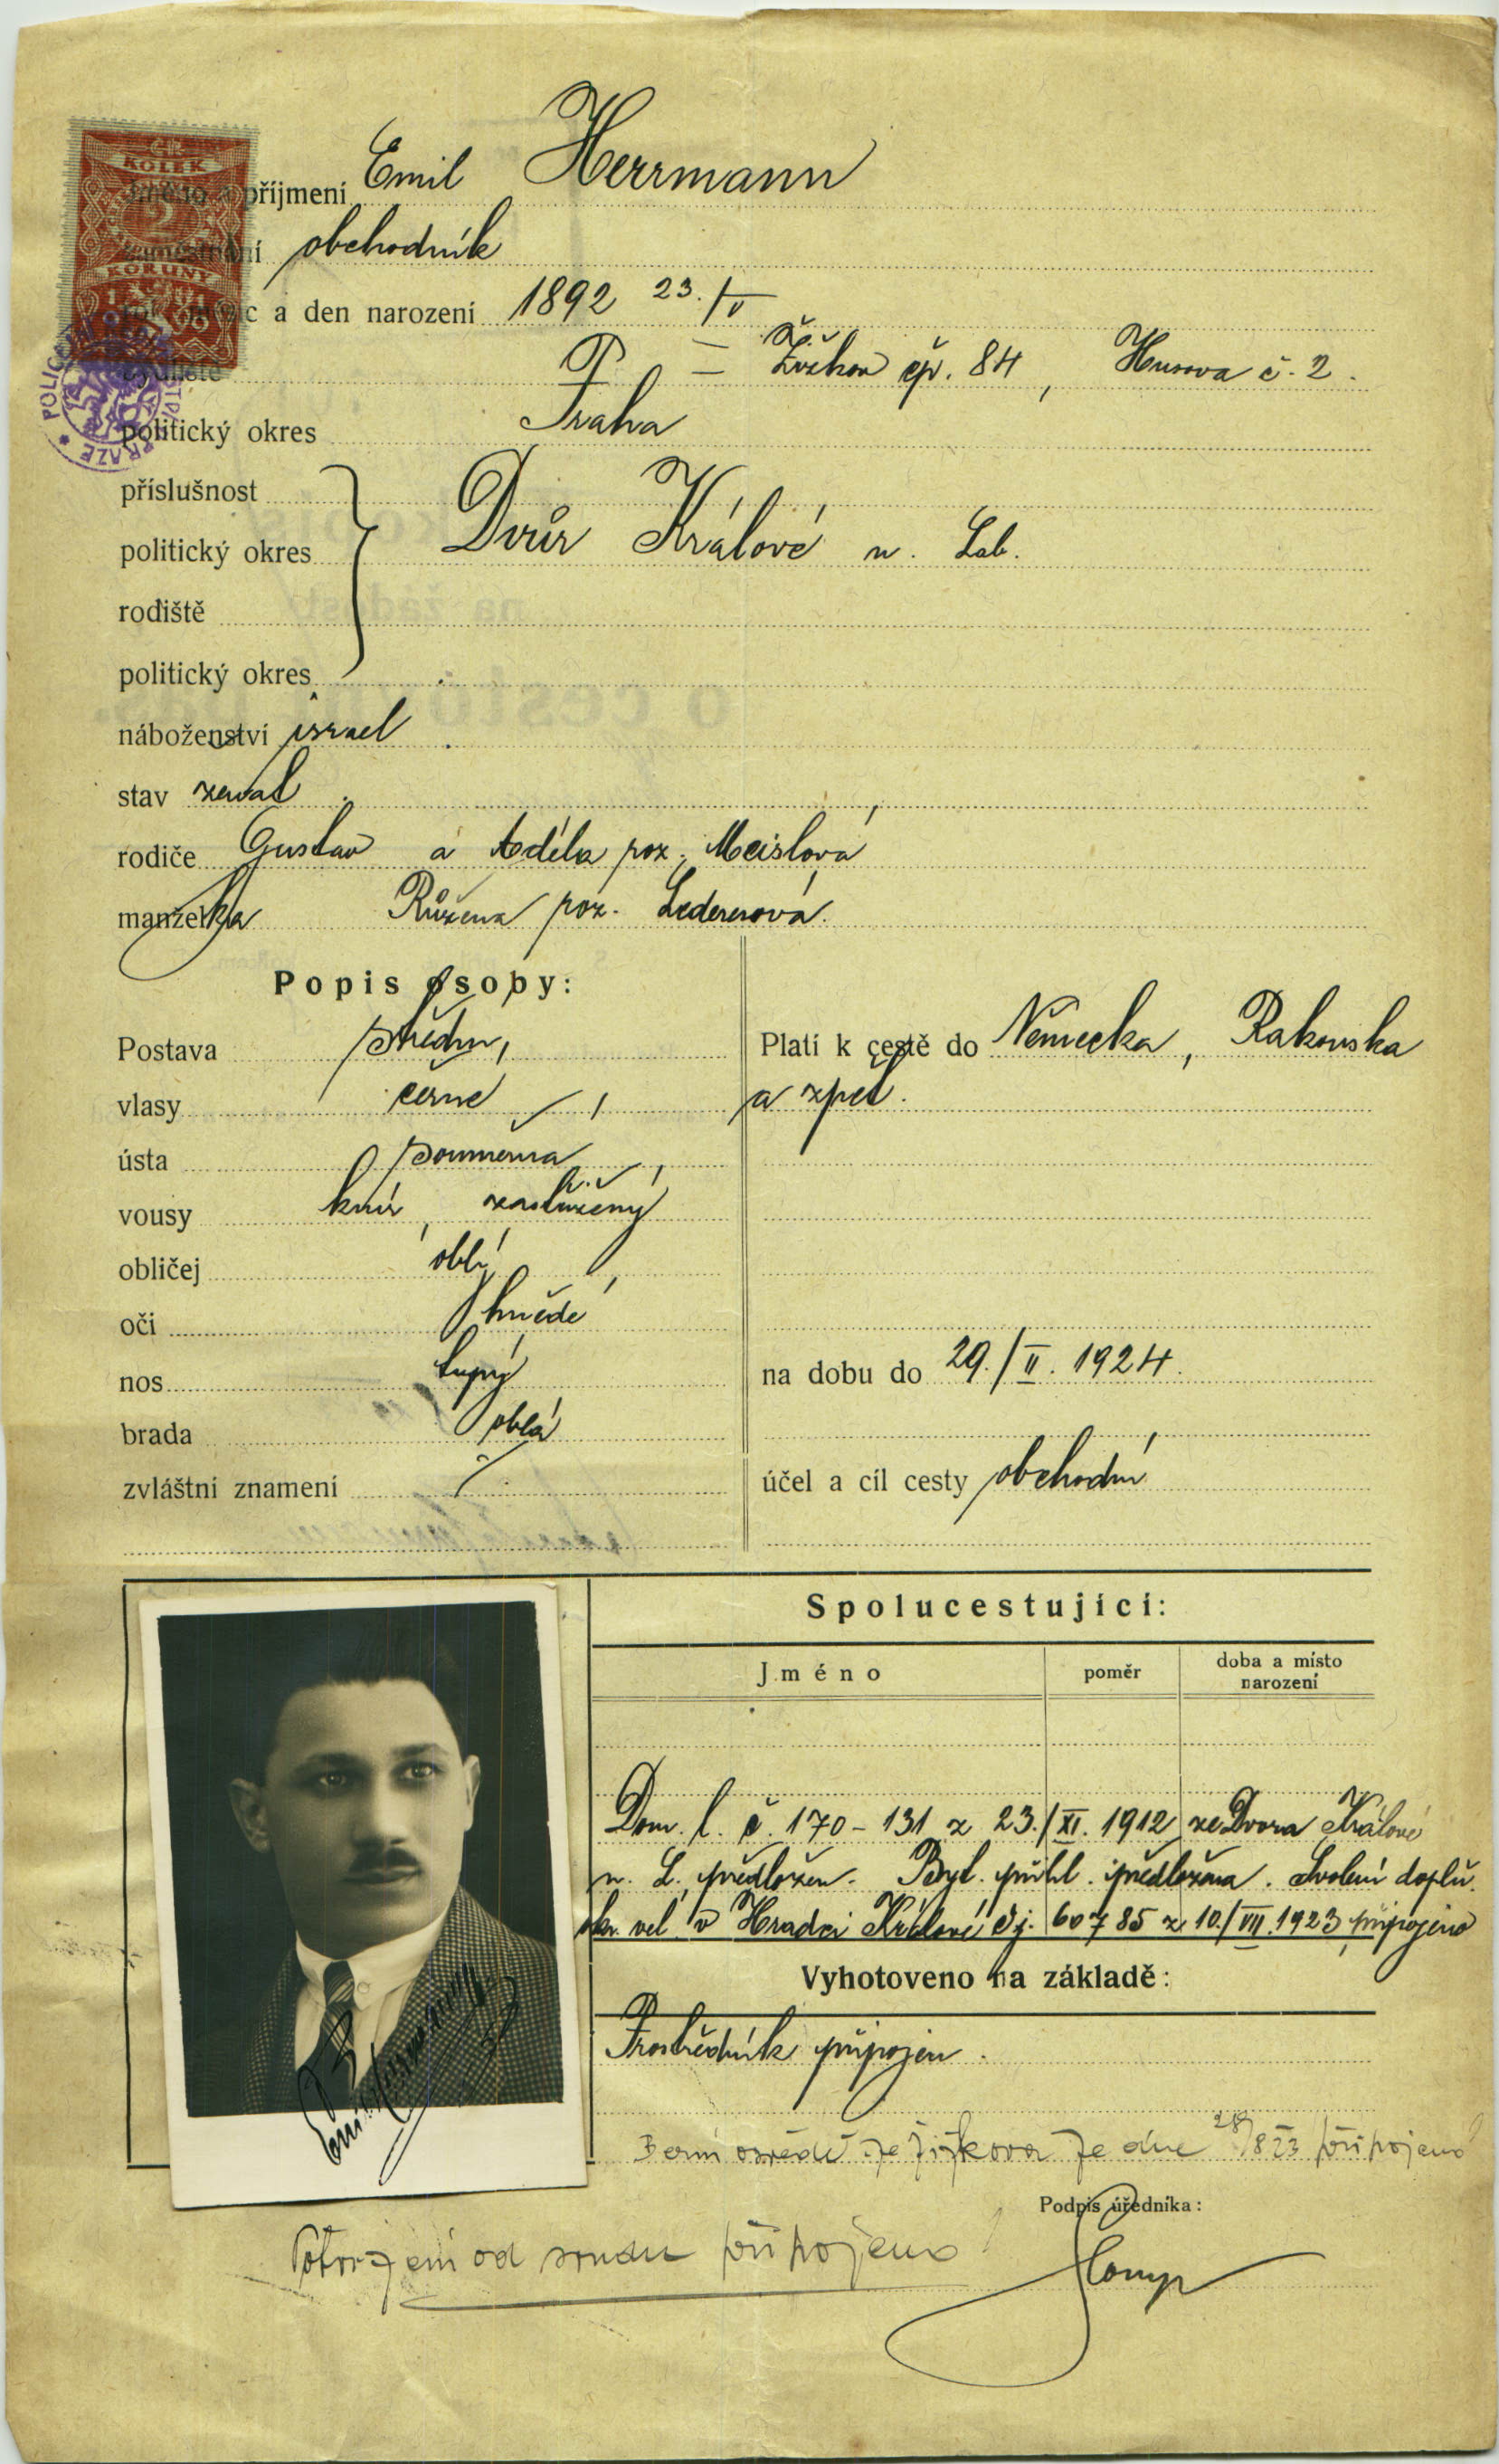 KOLEK
2
KORUNY
1919
POLICEJNÍ PRAZE
Jméno a příjmení Emil Herrmann
zaměstnání obchodník
rok měsíc a den narození 1892 23./V
bydliště P – Žižkov čp. 84, Husova č. 2.
politický okres Praha
příslušnost
politický okres Dvůr Králové n. Lab.
rodiště
politický okres
náboženství israel
stav ženat
rodiče Gustav a Adéla roz. Meislová
manželka Růžena roz. Ledererová.
Popis osoby:
Postava střední,
vlasy černé,
ústa souměrná,
vousy knír, zastřižený
obličej oblý,
oči hnědé
nos tupý
brada oblá
zvláštní znamení /.
Platí k cestě do Německa, Rakouska
a zpět.
na dobu do 29./II. 1924.
účel a cíl cesty obchodní
Spolucestující:
Jméno poměr doba a místo narození
Dom. l. č. 170–131 z 23./XI. 1912 ze Dvora Králové
n. L. předložen. Byt. přihl. předložena. Svolení doplň.
okr. vel. v Hradci Králové čj. 60785 z 10./VII. 1923 připojeno
Vyhotoveno na základě:
Prostředník připojen.
Berní osvědč. ze Žižkova ze dne 28/8 23 připojeno
Podpis úředníka:
Potvrzení od soudu připojeno
Emil Herrmann